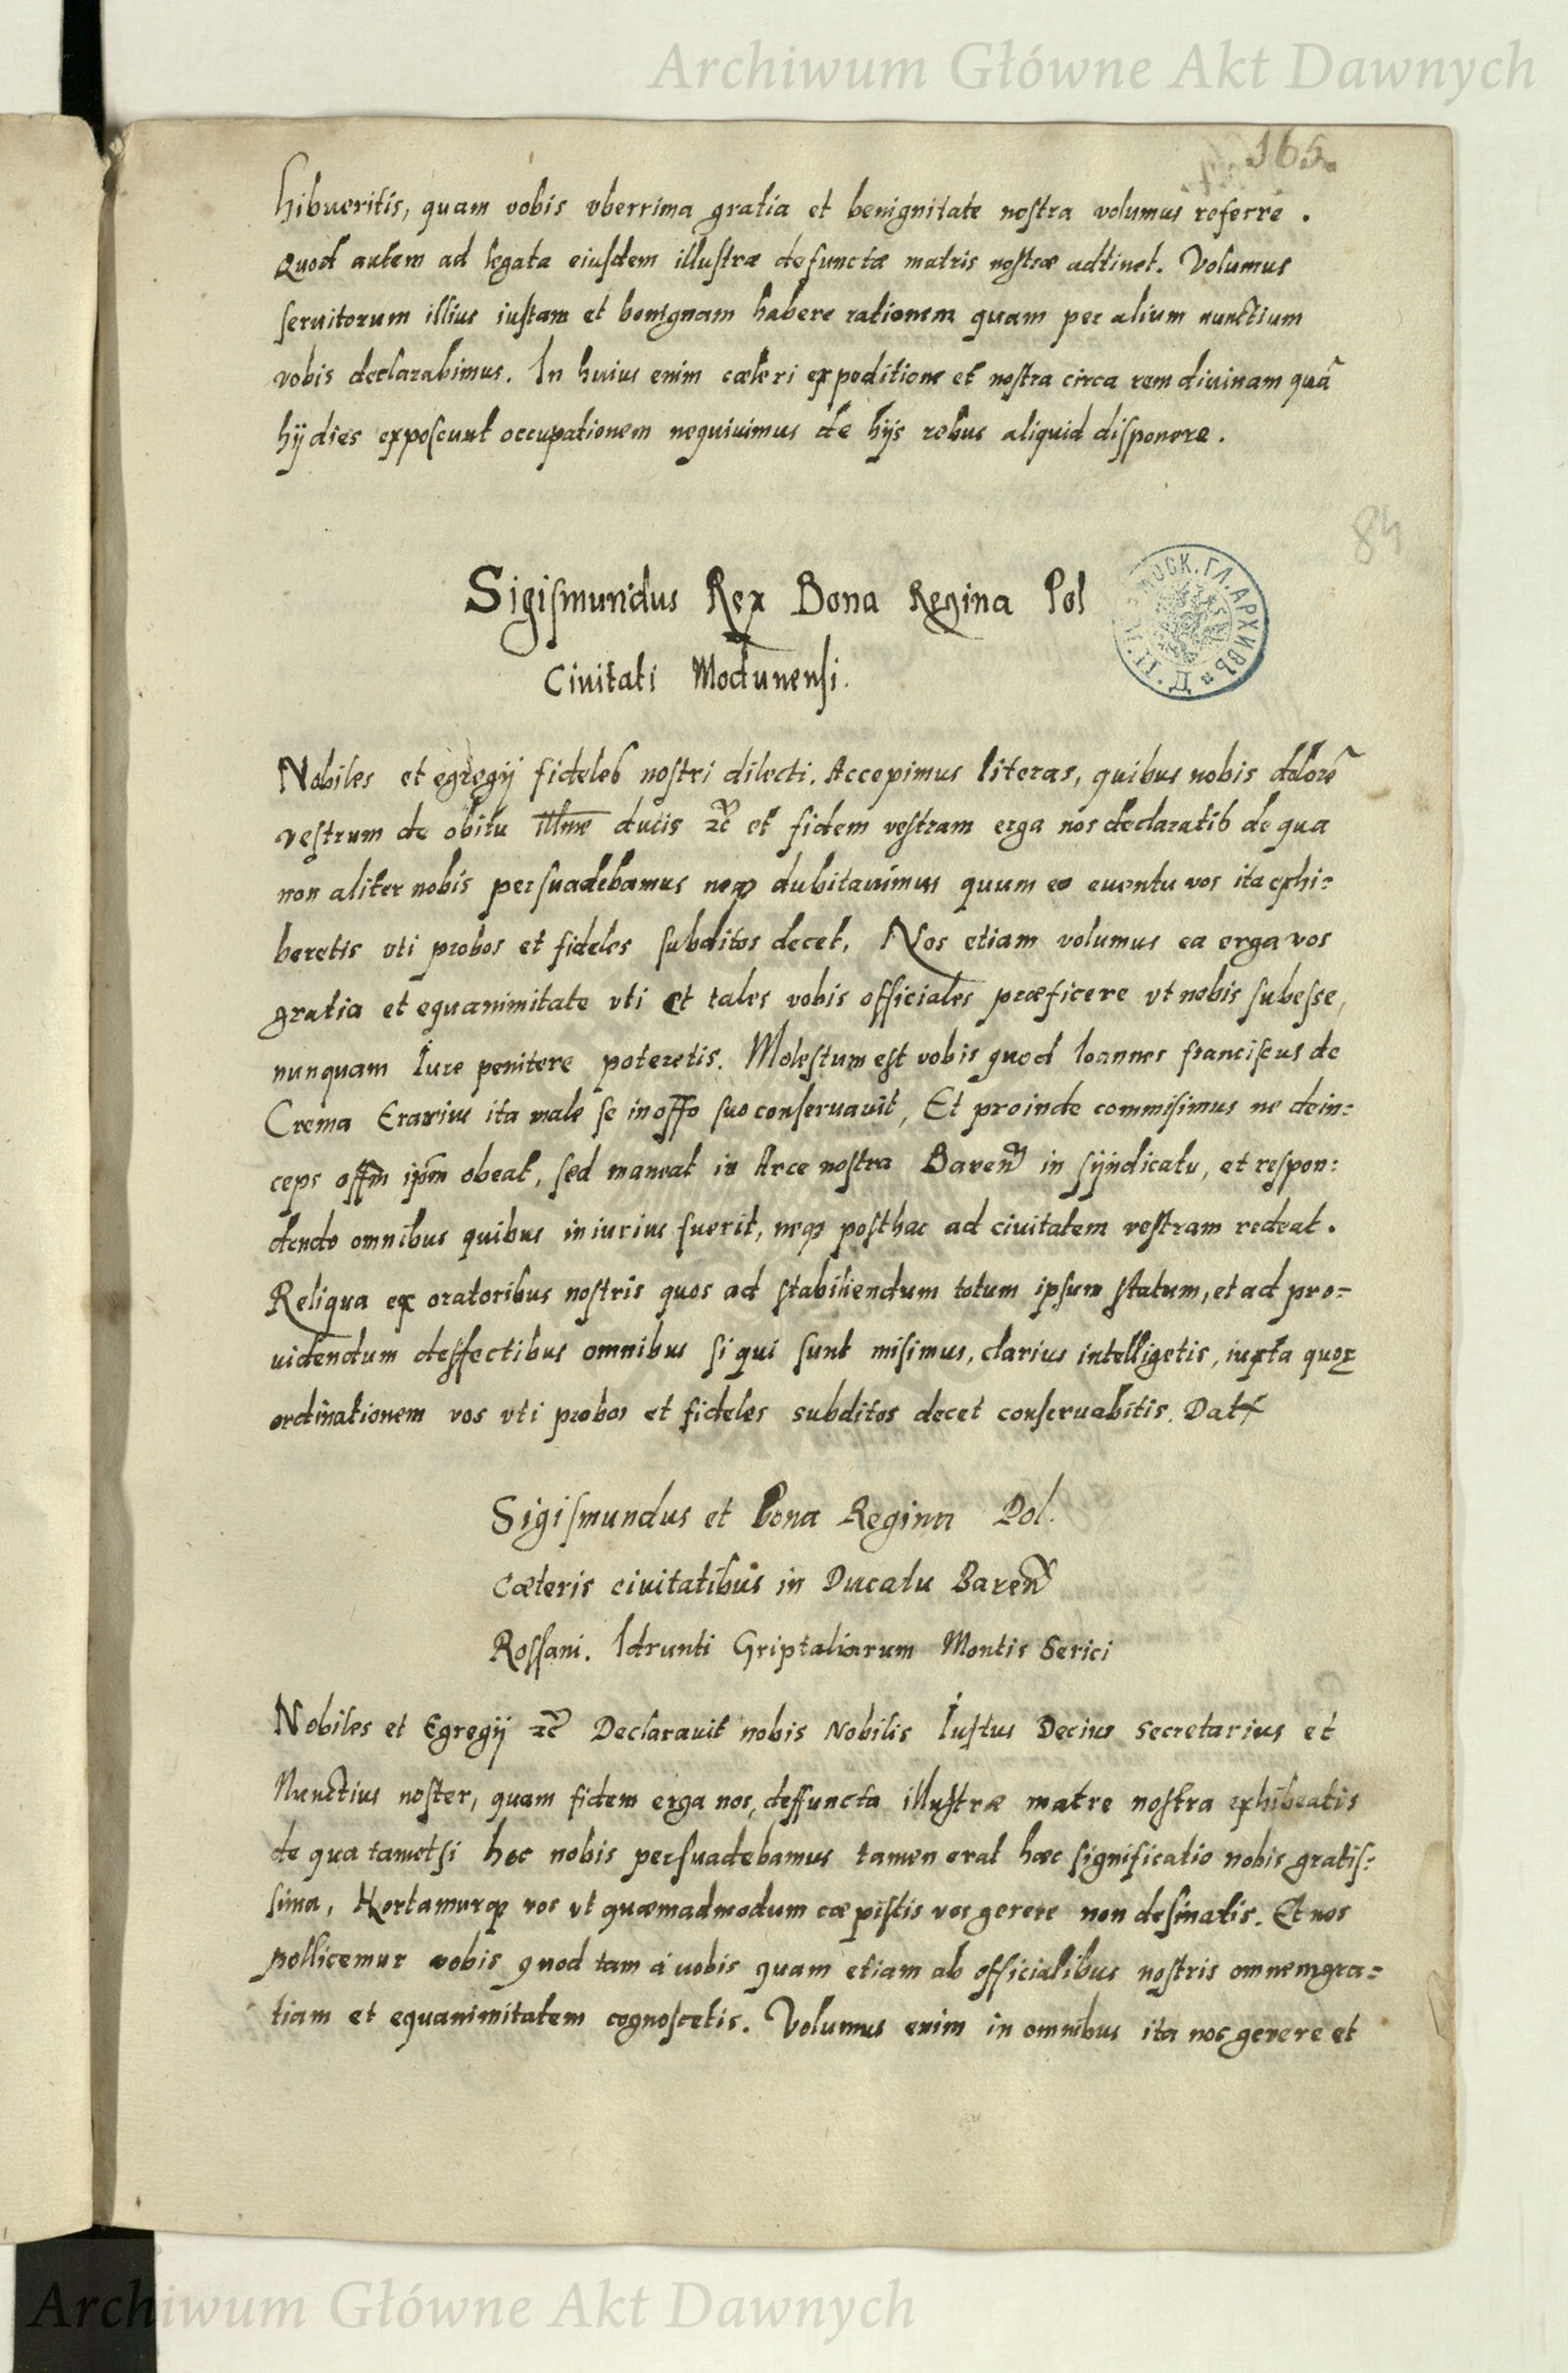 Archiwum Główne Akt Dawnych
165.
hibueritis, quam vobis vberrima gratia et benignitate nostra volumus referre .
Quod autem ad legata eiusdem illustræ defunctæ matris nostræ adtinet. Volumus
seruitorum illius iustam et benignam habere rationem quam per alium nunctium
vobis declarabimus. In huius enim cæleri expeditione et nostra circa rem diuinam quã
hÿ dies exposcunt occupationem nequiuimus de hÿs rebus aliquid disponere .
84
Sigismundus Rex Bona Regina Pol
Ciuitati Modunensi.
МОСК. ГЛ. АРХИВЪ
Nobiles et egregÿ fideles nostri dilecti. Accepimus literas, quibus nobis dolorẽ
vestrum de obitu Illme ducis ꝛc̃ et fidem vestram erga nos declaratis de qua
non aliter nobis persuadebamus neqꝫ dubitauimus quum eo euentu vos ita exhi=
beretis vti probos et fideles subditos decet, Nos etiam volumus ea erga vos
gratia et equanimitate vti et tales vobis officiales præficere vt nobis subesse,
nunquam Iure penitere poteretis. Molestum est vobis quod Ioannes franciscus de
Crema Erarius ita male se in offo suo conseruauit, Et proinde commisimus ne dein=
ceps offm ipm obeat, sed maneat in Arce nostra Baren̄ in syndicatu, et respon:
dendo omnibus quibus iniurius fuerit, neqꝫ posthac ad ciuitatem vestram redeat .
Reliqua ex oratoribus nostris quos ad stabiliendum totum ipsum statum, et ad pro=
uidendum deffectibus omnibus si qui sunt misimus, clarius intelligetis, iuxta quoꝝ
ordinationem vos vti probos et fideles subditos decet conseruabitis. Datꝭ
Sigismundus et Bona Regina Pol.
Cæteris ciuitatibus in Ducatu Baren̄
Rossani. Idrunti Griptaliarum Montis Serici
Nobiles et Egregÿ ꝛc̃ Declarauit nobis Nobilis Iustus Decius Secretarius et
Nunctius noster, quam fidem erga nos, deffuncta illustræ matre nostra exhibeatis
de qua tametsi hoc nobis persuadebamus tamen erat hæc significatio nobis gratis:
sima, Hortamurqꝫ vos vt quæmadmodum cæpistis vos gerere non desinatis. Et nos
pollicemur vobis quod tam á nobis quam etiam ab officialibus nostris omnem gra=
tiam et equanimitatem cognoscetis. Volumus enim in omnibus ita nos gerere et
Archiwum Główne Akt Dawnych